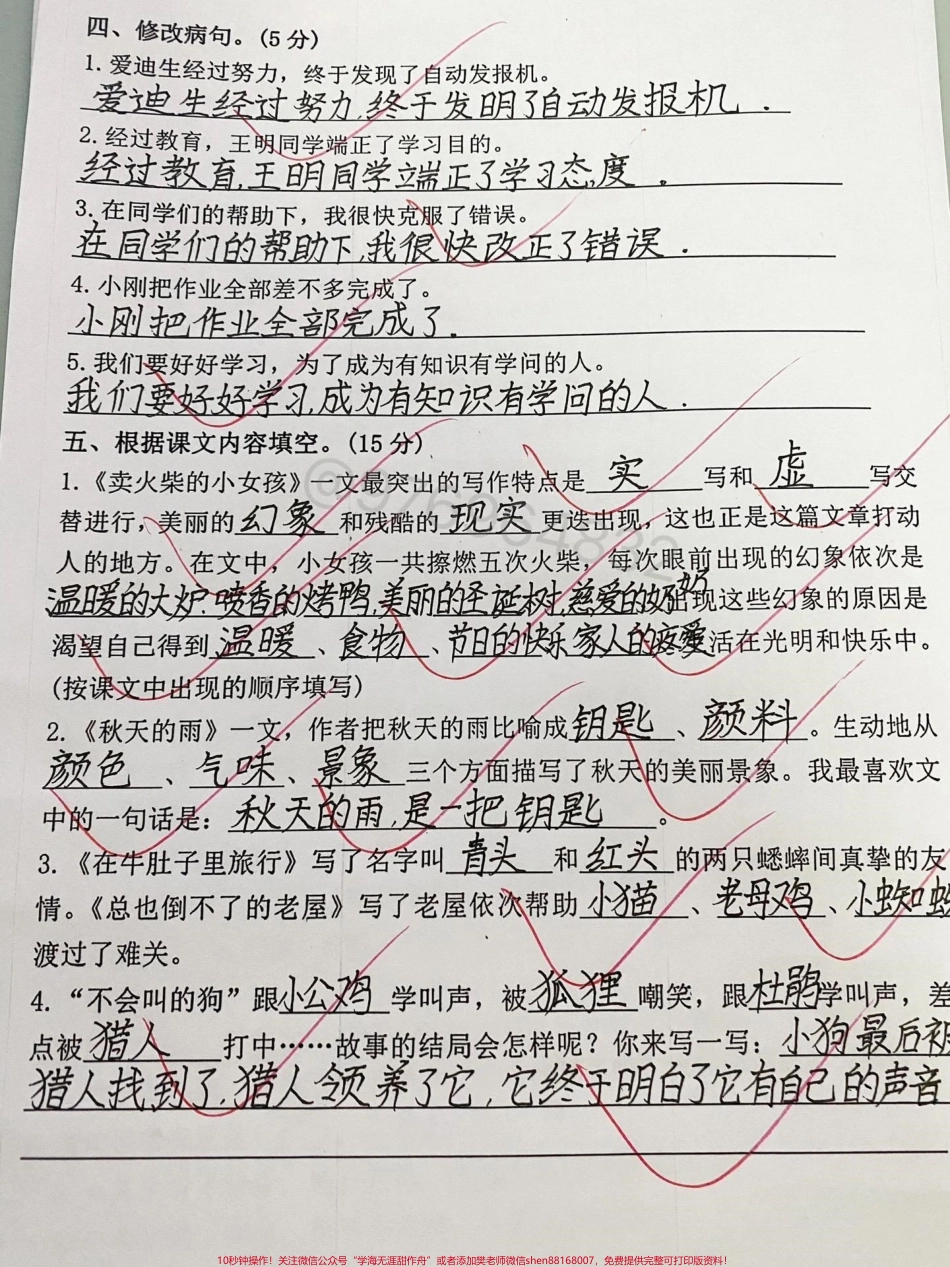 四、修改病句。(5分)
1. 爱迪生经过努力，终于发现了自动发报机。
爱迪生经过努力,终于发明了自动发报机.
2. 经过教育，王明同学端正了学习目的。
经过教育,王明同学端正了学习态度.
3. 在同学们的帮助下，我很快克服了错误。
在同学们的帮助下,我很快改正了错误.
4. 小刚把作业全部差不多完成了。
小刚把作业全部完成了.
5. 我们要好好学习，为了成为有知识有学问的人。
我们要好好学习,成为有知识有学问的人.
五、根据课文内容填空。(15分)
1.《卖火柴的小女孩》一文最突出的写作特点是 实 写和 虚 写交
替进行，美丽的 幻象 和残酷的 现实 更迭出现，这也正是这篇文章打动
人的地方。在文中，小女孩一共擦燃五次火柴，每次眼前出现的幻象依次是
温暖的大炉.喷香的烤鸭,美丽的圣诞树,慈爱的奶奶出现这些幻象的原因是
渴望自己得到 温暖 、食物 、节日的快乐 家人的疼爱 活在光明和快乐中。
(按课文中出现的顺序填写)
2.《秋天的雨》一文，作者把秋天的雨比喻成 钥匙 、颜料 。生动地从
颜色 、气味 、景象 三个方面描写了秋天的美丽景象。我最喜欢文
中的一句话是：秋天的雨,是一把钥匙 。
3.《在牛肚子里旅行》写了名字叫 青头 和 红头 的两只蟋蟀间真挚的友
情。《总也倒不了的老屋》写了老屋依次帮助 小猫 、老母鸡 、小蜘蛛
渡过了难关。
4.“不会叫的狗”跟 小公鸡 学叫声，被 狐狸 嘲笑，跟 杜鹃 学叫声，差
点被 猎人 打中……故事的结局会怎样呢？你来写一写：小狗最后被
猎人找到了,猎人领养了它,它终于明白了它有自己的声音
10秒钟操作！关注微信公众号“学海无涯甜作舟”或者添加樊老师微信shen88168007，免费提供完整可打印版资料！